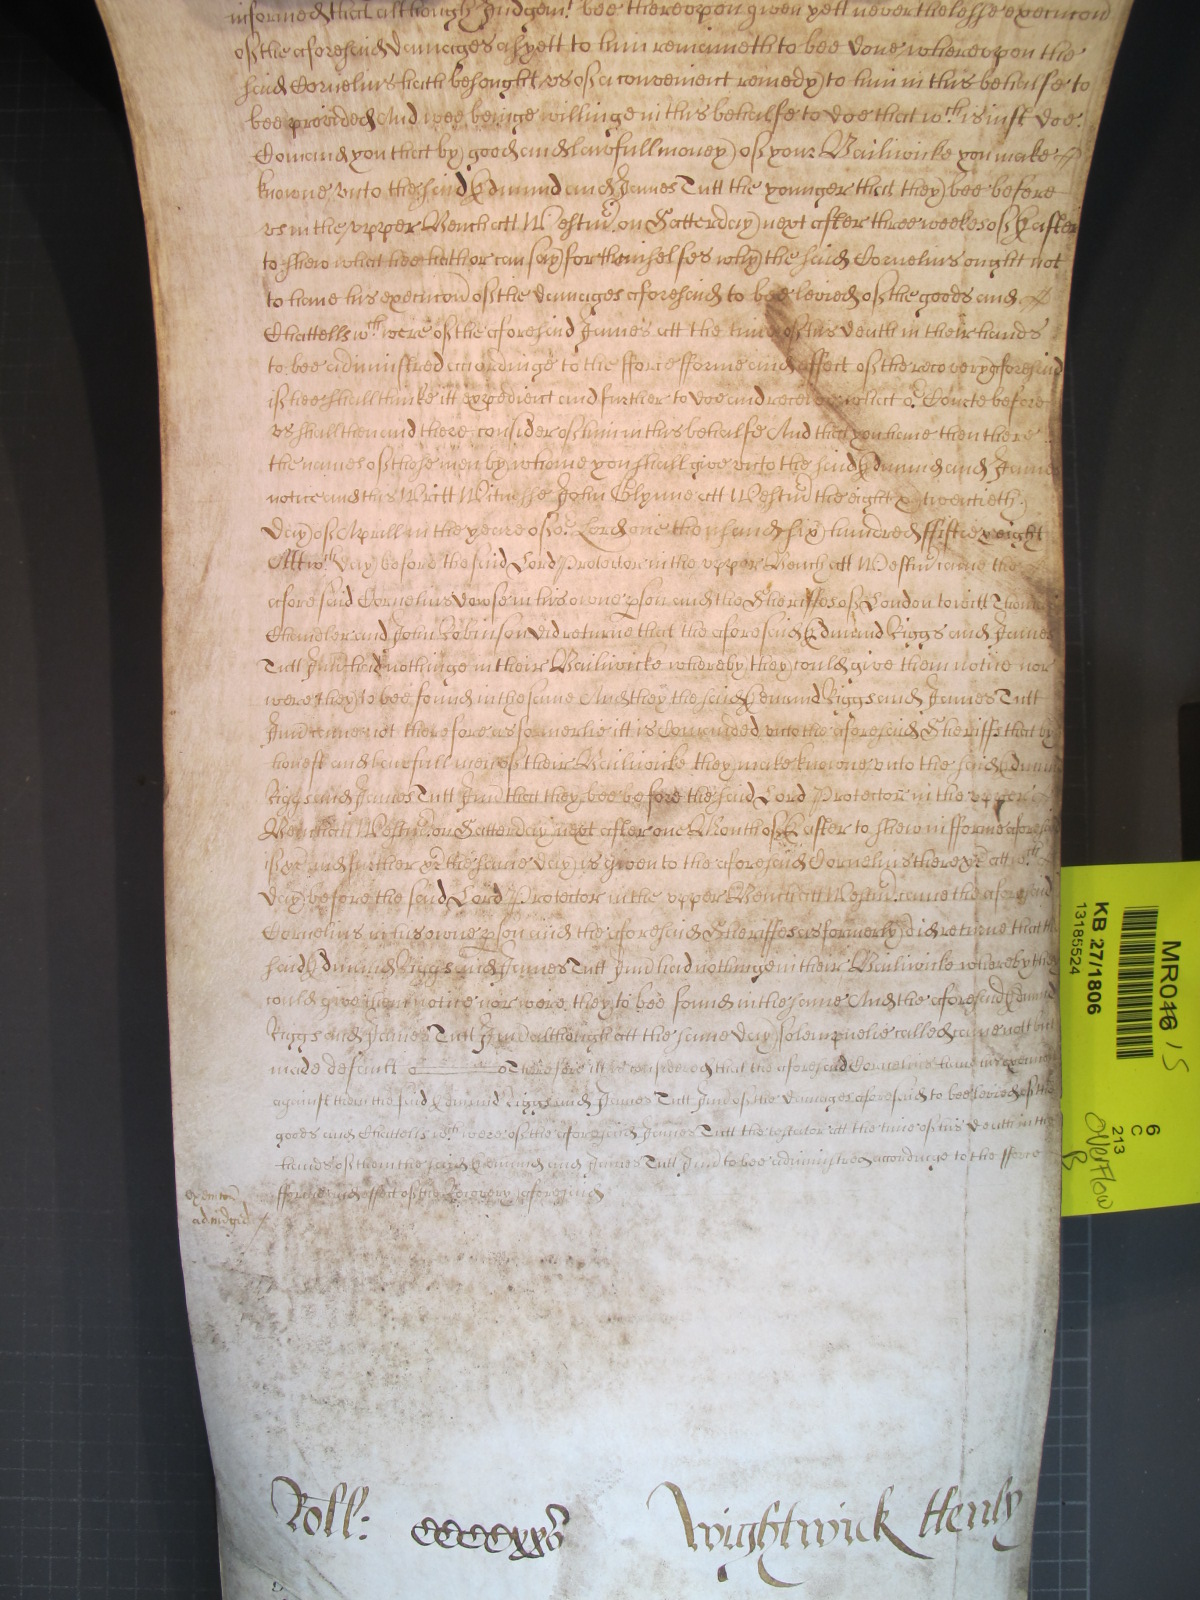 informed that although Judgemt. bee thereopon given yett neverthelesse execucon
of the aforesaid damages as yett to him remaineth to bee done whereopon the
said Cornelius hath besought us of a convenient remedy to him in this behalfe to
bee provided And wee beinge willinge in this behalfe to doe that wch is iust doe
Comand you that by good and lawfull men of your Bailiwicke you make
knowne unto the said Edmund and James Tutt the younger that they bee before
us in the upper Bench att Westmr. on Satterday next after three weekes of Easter
to shew what hee hath or can say for themselfes why the said Cornelius ought not
to have his execucon of the damages aforesaid to bee levied of the goods and
Chattells wch were of the aforesaid James att the time of his death in their hands
to bee administred accordinge to the fforce fforme and effect of the recovery aforesaid
if hee shall thinke itt expedient and further to doe and receive what or. Courte before
us shall then and there consider of him in this behalfe And that you have then there
the names of those men by whome you shall give unto the said Edmund and James
notice and this Writt Witnesse John Glynne att Westmr. the eight & twentieth
day of Aprill in the yeare of or. Lord one thousand six hundred ffiftie & eight
Att wch day before the said Lord Protector in the upper Bench att Westmr. came the
aforesaid Cornelius in his owne pson and the Sheriffes of London to witt Thomas
Chandler and John Robinson did returne that the aforesaid Edmund Riggs and James
Tutt Junr. had nothinge in their Bailiwicke whereby they could give them notice nor
were they to bee found in the same And they the said Edmund Riggs and James Tutt
Junr. came not therefore as formerlie itt is Comanded unto the aforesaid Sheriffs that by
honest and lawfull men of their Bailiwicke they make knowne unto the said Edmund
Riggs and James Tutt Junr. that they bee before the said Lord Protector in the upper
Bench att Westmr. on Satterday next after one Month of Easter to shew in fforme aforesaid
if &c and further &c the same day is given to the aforesaid Cornelius there &c att wch
day before the said Lord Protector in the upper Bench att Westmr. came the aforesaid
Cornelius in his owne pson and the aforesaid Sheriffes as formerly did returne that the
said Edmund Riggs and James Tutt Junr. had nothinge in their Bailiwicke whereby they
could give them notice nor were they to bee found in the same And the aforesaid Edmund
Riggs and James Tutt Junr. although att the same day solempnelie called came not but
made default Therefore itt is considered that the aforesaid Cornelius have his execucon
against them the said Edmund Riggs and James Tutt Junr. of the damages aforesaid to bee levied of the
goods and Chattells wch were of the aforesaid James Tutt the testator att the time of his death in the
hands of them the said Edmund and James Tutt Junr. to bee administred accordinge to the fforce
fforme and effect of the Recovery aforesaid
execucon
adiudged
Roll: ccccxx
Wightwick Henly
MR046 / 5
KB 27/1806
13185524
6
C
213
OverFlow
B